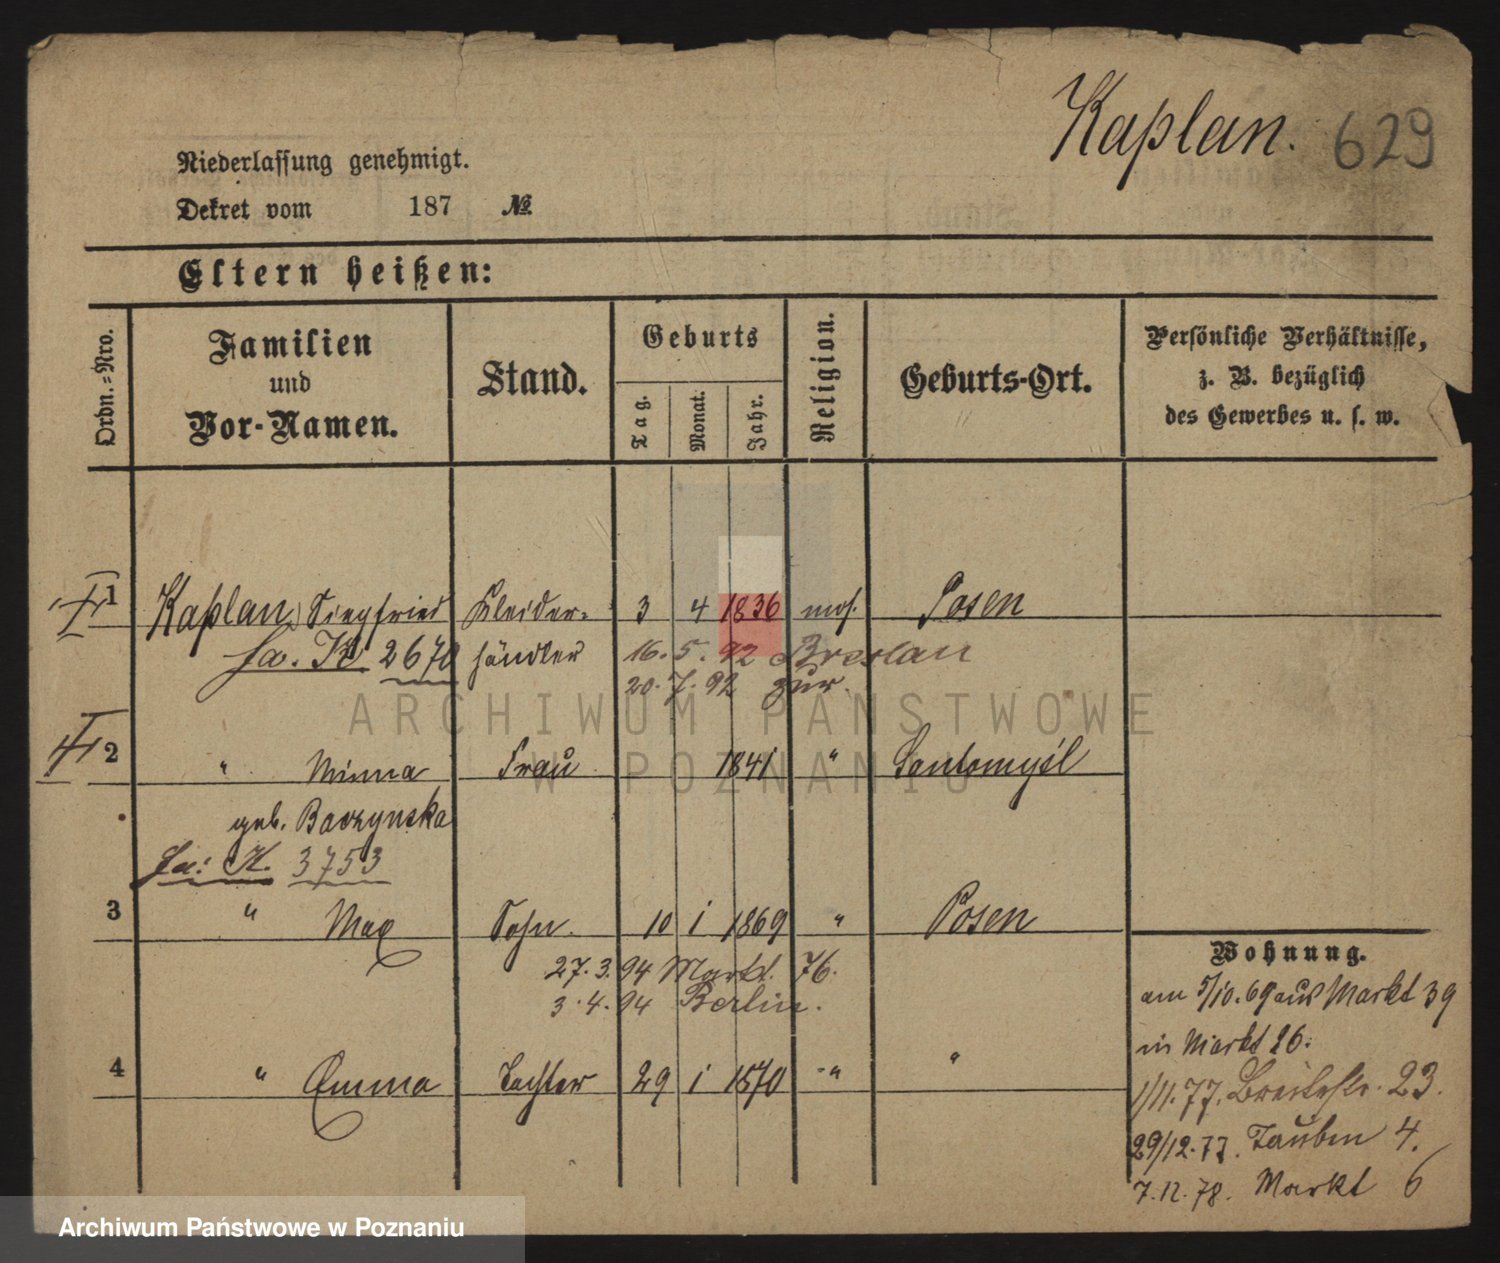 Kaplan. 629
Niederlassung genehmigt.
Dekret vom 187 №
Eltern heißen:
Ordn.=Nro.
Familien
und
Vor-Namen.
Stand.
Geburts
Tag.
Monat.
Jahr.
Religion.
Geburts-Ort.
Persönliche Verhältnisse,
z. B. bezüglich
des Gewerbes u. s. w.
1 Kaplan, Siegfried Kleider= 3 4 1836 mos. Posen
fa. K 2670 händler 16. 5. 92 Breslau
20. 7. 92 zur.
2 " Minna Frau 1841 " Santomysl
geb. Baczynska
fa: K. 3753
3 " Max Sohn. 10 1 1869 " Posen
27. 3. 94 Markt. 76.
3. 4. 94 Berlin.
4 " Emma Tochter 29 1 1870 " "
Wohnung.
am 5/10. 69 aus Markt 39
in Markt 26.
1/11. 77. Breitestr. 23.
29/12. 77. Tauben 4.
7. 12. 78. Markt 6
ARCHIWUM PAŃSTWOWE
W POZNANIU
Archiwum Państwowe w Poznaniu